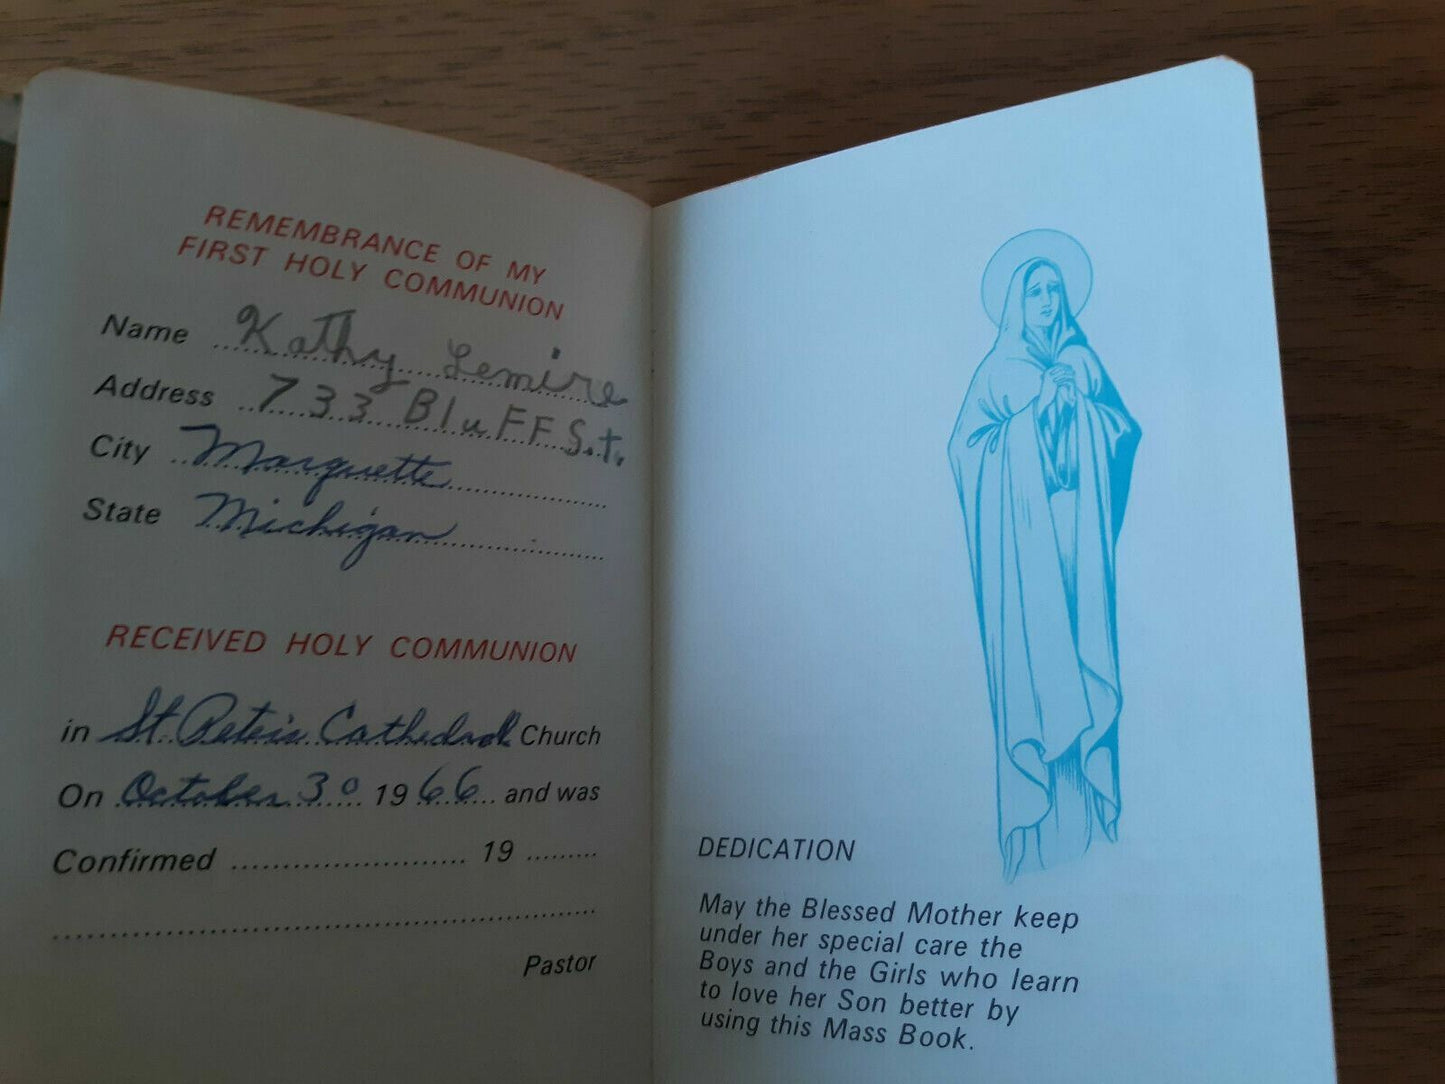 REMEMBRANCE OF MY
FIRST HOLY COMMUNION
Name Kathy Lemire
Address 733 Bluff St.
City Marquette
State Michigan
RECEIVED HOLY COMMUNION
in St. Peter's Cathedral Church
On October 30 1966 and was
Confirmed 19
Pastor
DEDICATION
May the Blessed Mother keep
under her special care the
Boys and the Girls who learn
to love her Son better by
using this Mass Book.